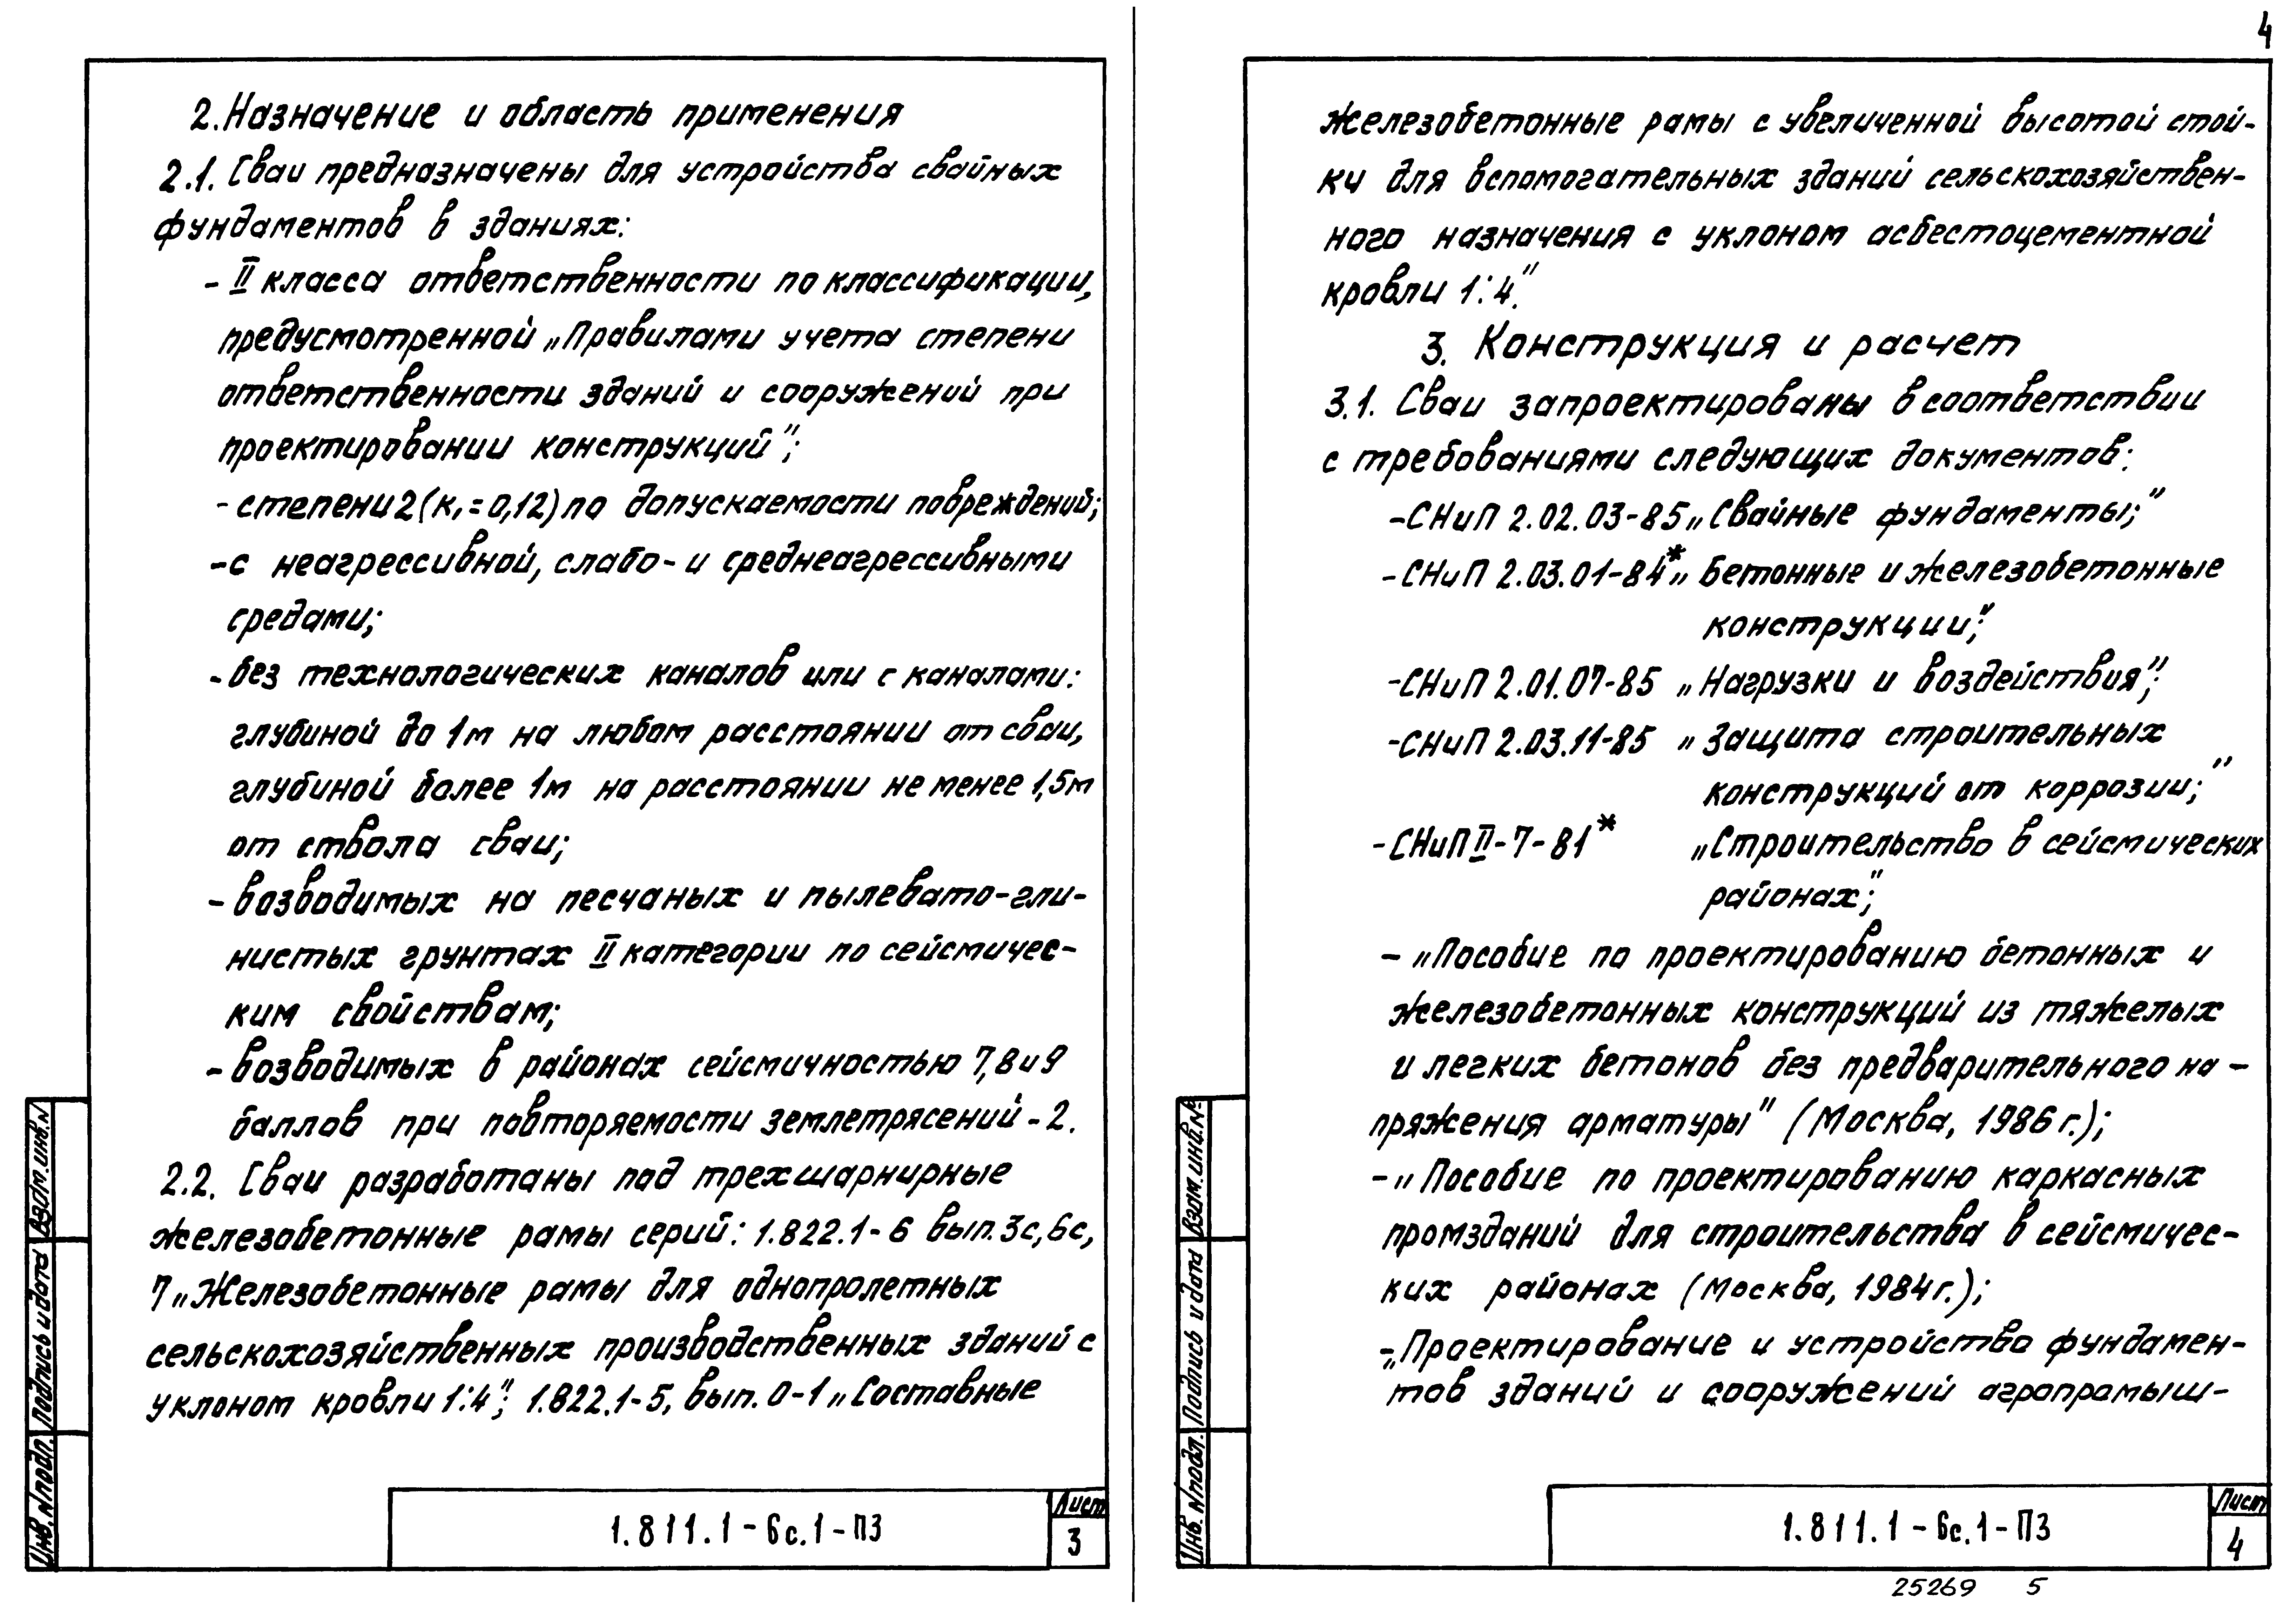 4
2. Назначение и область применения
2.1. Сваи предназначены для устройства свайных
фундаментов в зданиях:
- II класса ответственности по классификации,
предусмотренной „Правилами учета степени
ответственности зданий и сооружений при
проектировании конструкций";
- степени 2 (к₁ = 0,12) по допускаемости повреждений;
- с неагрессивной, слабо- и среднеагрессивными
средами;
- без технологических каналов или с каналами:
глубиной до 1м на любом расстоянии от сваи,
глубиной более 1м на расстоянии не менее 1,5м
от ствола сваи;
- возводимых на песчаных и пылевато-гли-
нистых грунтах II категории по сейсмичес-
ким свойствам;
- возводимых в районах сейсмичностью 7, 8 и 9
баллов при повторяемости землетрясений - 2.
2.2. Сваи разработаны под трехшарнирные
железобетонные рамы серий: 1.822.1-6 вып. 3с, 6с,
7 „Железобетонные рамы для однопролетных
сельскохозяйственных производственных зданий с
уклоном кровли 1:4"; 1.822.1-5, вып. 0-1 „Составные
Инв. № подл. Подпись и дата Взам. инв. №
1.811.1-6с.1-ПЗ
Лист
3
железобетонные рамы с увеличенной высотой стой-
ки для вспомогательных зданий сельскохозяйствен-
ного назначения с уклоном асбестоцементной
кровли 1:4."
3. Конструкция и расчет
3.1. Сваи запроектированы в соответствии
с требованиями следующих документов:
- СНиП 2.02.03-85 „Свайные фундаменты;"
- СНиП 2.03.01-84* „Бетонные и железобетонные
конструкции";
- СНиП 2.01.07-85 „Нагрузки и воздействия";
- СНиП 2.03.11-85 „Защита строительных
конструкций от коррозии;"
- СНиП II-7-81* „Строительство в сейсмических
районах";
- „Пособие по проектированию бетонных и
железобетонных конструкций из тяжелых
и легких бетонов без предварительного на-
пряжения арматуры" (Москва, 1986 г.);
- „Пособие по проектированию каркасных
промзданий для строительства в сейсмичес-
ких районах (Москва, 1984 г.);
- „Проектирование и устройство фундамен-
тов зданий и сооружений агропромыш-
Инв. № подл. Подпись и дата Взам. инв. №
1.811.1-6с.1-ПЗ
Лист
4
25269 5